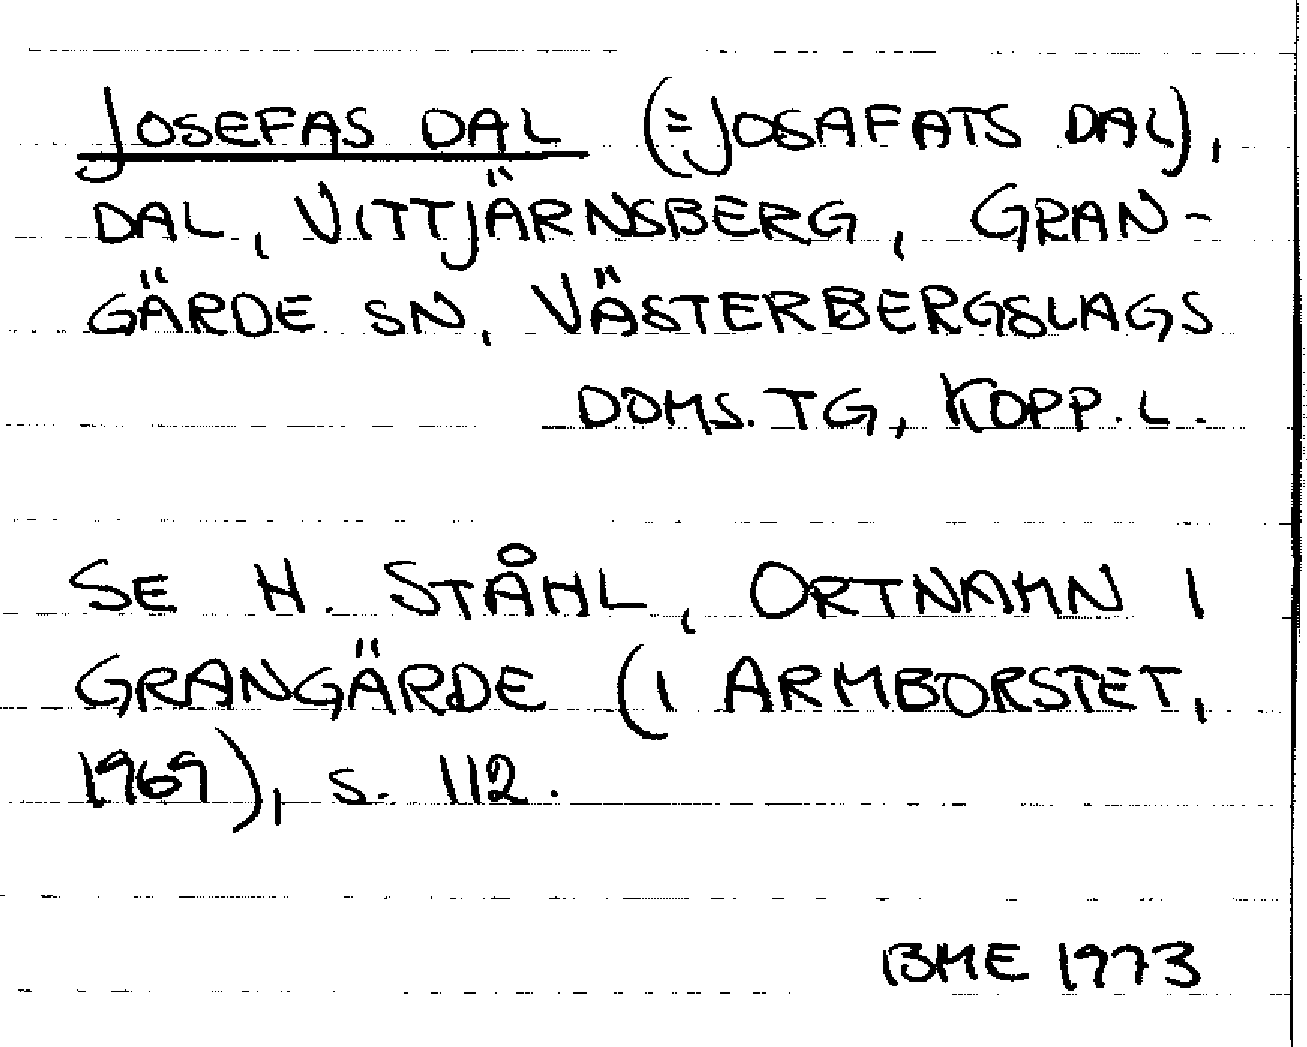 JOSEFAS DAL (=JOSAFATS DAL),
DAL, VITTJÄRNSBERG, GRAN-
GÄRDE SN, VÄSTERBERGSLAGS
DOMS.TG, KOPP.L.
SE H. STÅHL, ORTNAMN I
GRANGÄRDE (I ARMBORSTET,
1969), S. 112.
BME 1973